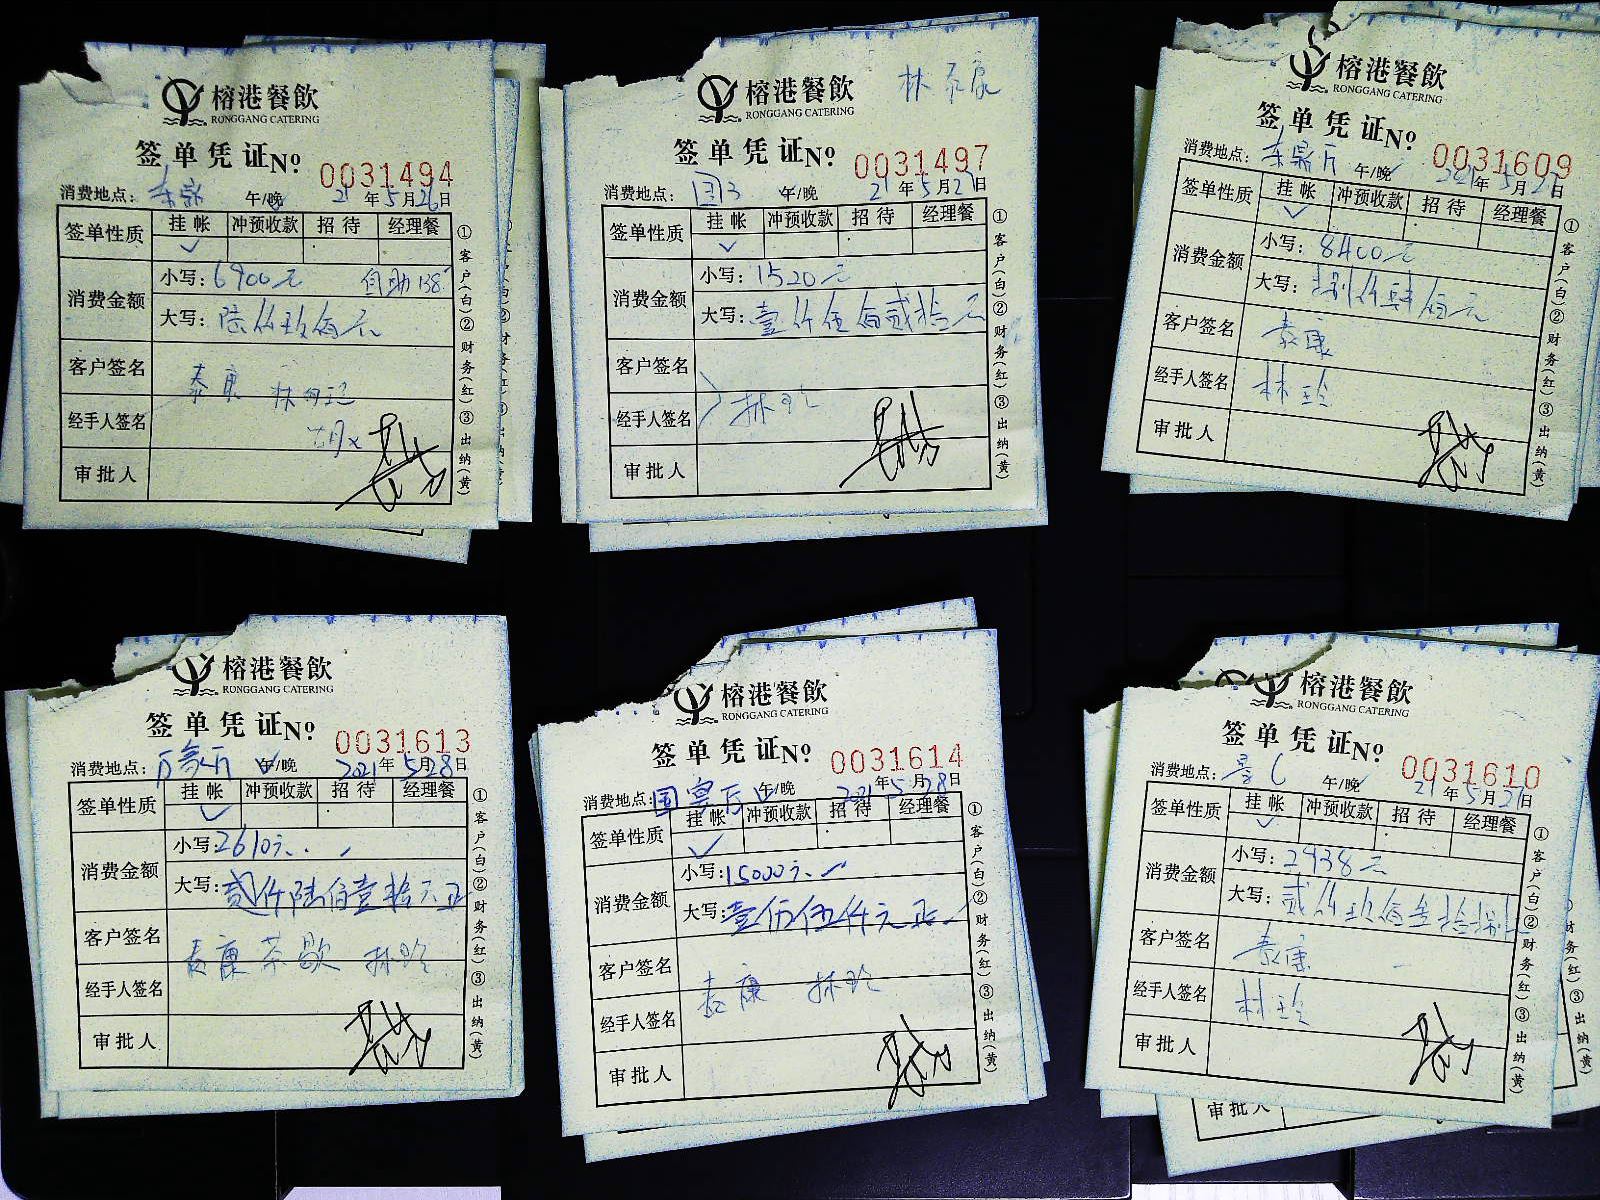 榕港餐飲
RONGGANG CATERING
签单凭证№ 0031494
消费地点： 午/晚 21年5月26日
签单性质 挂帐 冲预收款 招待 经理餐
✓
消费金额 小写：6900元 自助138
大写：陆仟玖佰元
客户签名 泰康
经手人签名
审批人
①客户(白)②财务(红)③出纳(黄)
榕港餐飲 林泰康
RONGGANG CATERING
签单凭证№ 0031497
消费地点：国3 午/晚 21年5月27日
签单性质 挂帐 冲预收款 招待 经理餐
✓
消费金额 小写：1520元
大写：壹仟伍佰贰拾元
客户签名
经手人签名 林玲
审批人
①客户(白)②财务(红)③出纳(黄)
榕港餐飲
RONGGANG CATERING
签单凭证№ 0031609
消费地点： 午/晚 2021年5月27日
签单性质 挂帐 冲预收款 招待 经理餐
✓
消费金额 小写：8400元
大写：捌仟肆佰元
客户签名 泰康
经手人签名 林玲
审批人
①客户(白)②财务(红)③出纳(黄)
榕港餐飲
RONGGANG CATERING
签单凭证№ 0031613
消费地点： 午/晚 2021年5月28日
签单性质 挂帐 冲预收款 招待 经理餐
✓
消费金额 小写：2610元
大写：贰仟陆佰壹拾元正
客户签名 泰康茶歇 林玲
经手人签名
审批人
①客户(白)②财务(红)③出纳(黄)
榕港餐飲
RONGGANG CATERING
签单凭证№ 0031614
消费地点：国宴厅 午/晚 2021年5月28日
签单性质 挂帐 冲预收款 招待 经理餐
✓
消费金额 小写：15000元
大写：壹万伍仟元正
客户签名 泰康 林玲
经手人签名
审批人
①客户(白)②财务(红)③出纳(黄)
榕港餐飲
RONGGANG CATERING
签单凭证№ 0031610
消费地点： 午/晚 21年5月27日
签单性质 挂帐 冲预收款 招待 经理餐
✓
消费金额 小写：2938元
大写：贰仟玖佰叁拾捌元
客户签名 泰康
经手人签名 林玲
审批人
①客户(白)②财务(红)③出纳(黄)
审批人